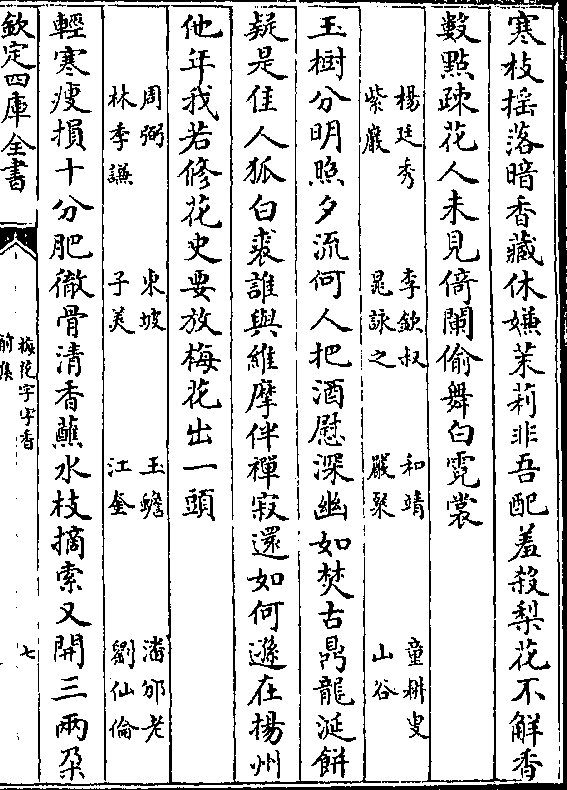 寒枝揺落暗香藏休嫌茉莉非吾配羞殺梨花不解香
數點疎花人未見倚闌偷舞白霓裳
楊廷秀　李欽叔　和靖　童耕叟
紫巖　晁詠之　嚴粲　山谷
玉樹分明照夕流何人把酒慰深幽如焚古鼎龍涎餅
疑是佳人狐白裘誰與維摩伴禪寂還如何遜在揚州
他年我若修花史要放梅花出一頭
周弼　東坡　玉蟾　潘邠老
林季謙　子美　江奎　劉仙倫
輕寒瘦損十分肥徹骨清香蘸水枝摘索又開三兩朶
欽定四庫全書
梅花字字香
前集
七